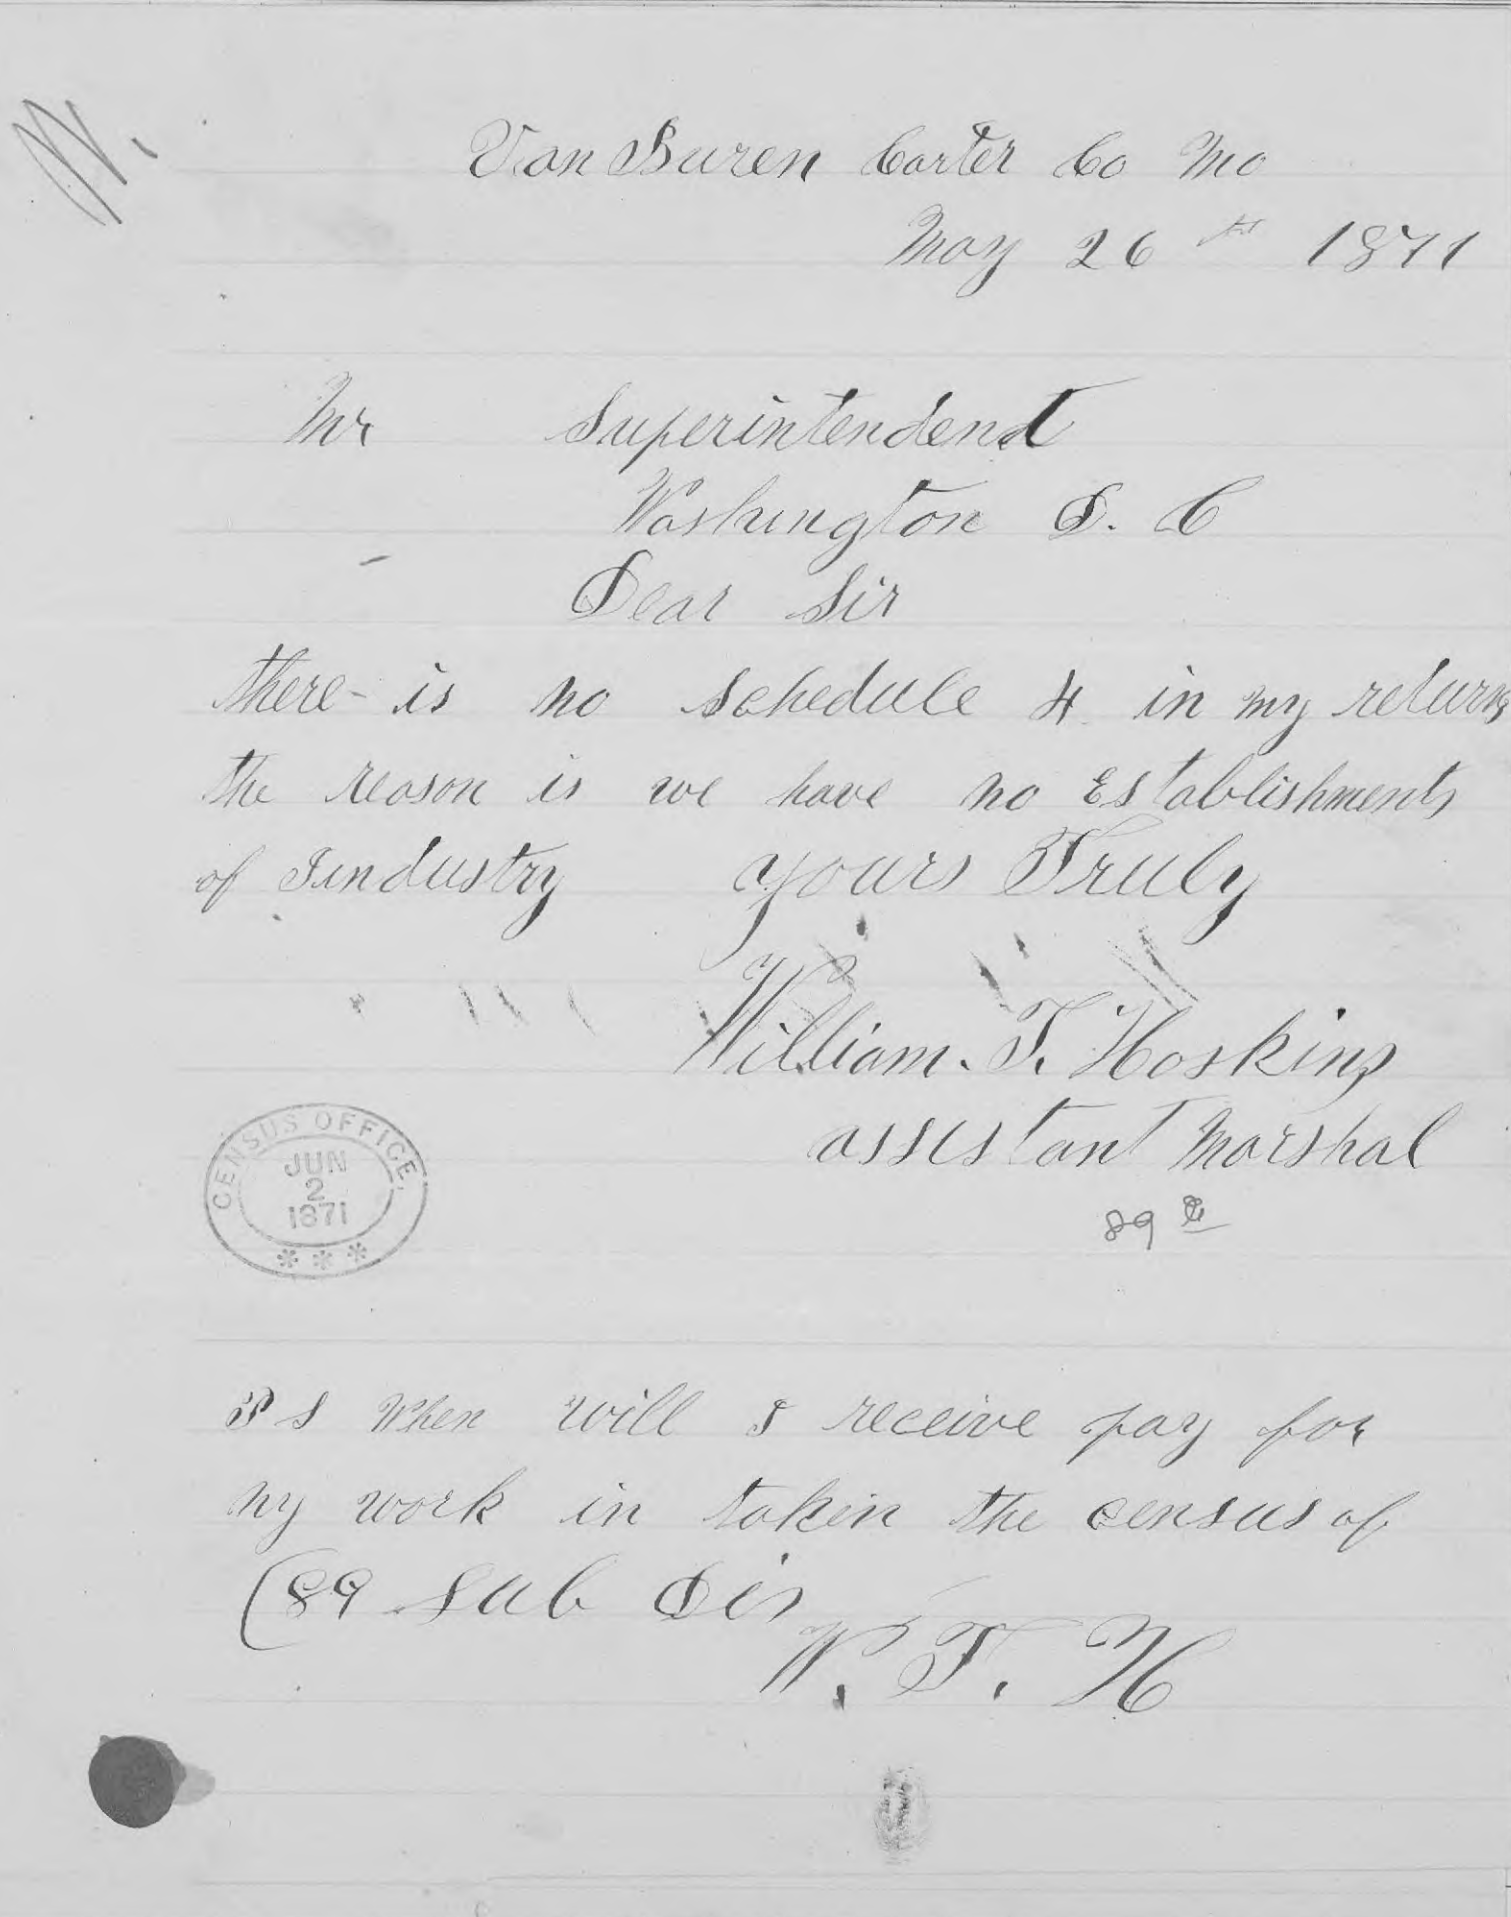 W.
Van Buren Carter Co Mo
May 26th 1871
Mr Superintendent
Washington D. C
Dear Sir
there is no Schedule 4 in my returns
the reason is we have no Establishments
of Iindustry yours Truly
William. T. Hoskins
assistant Marshal
89th
CENSUS OFFICE,
JUN
2
1871
* * *
P S When will I receive pay for
my work in takin the census of
(89 Sub Dis
W. T. H